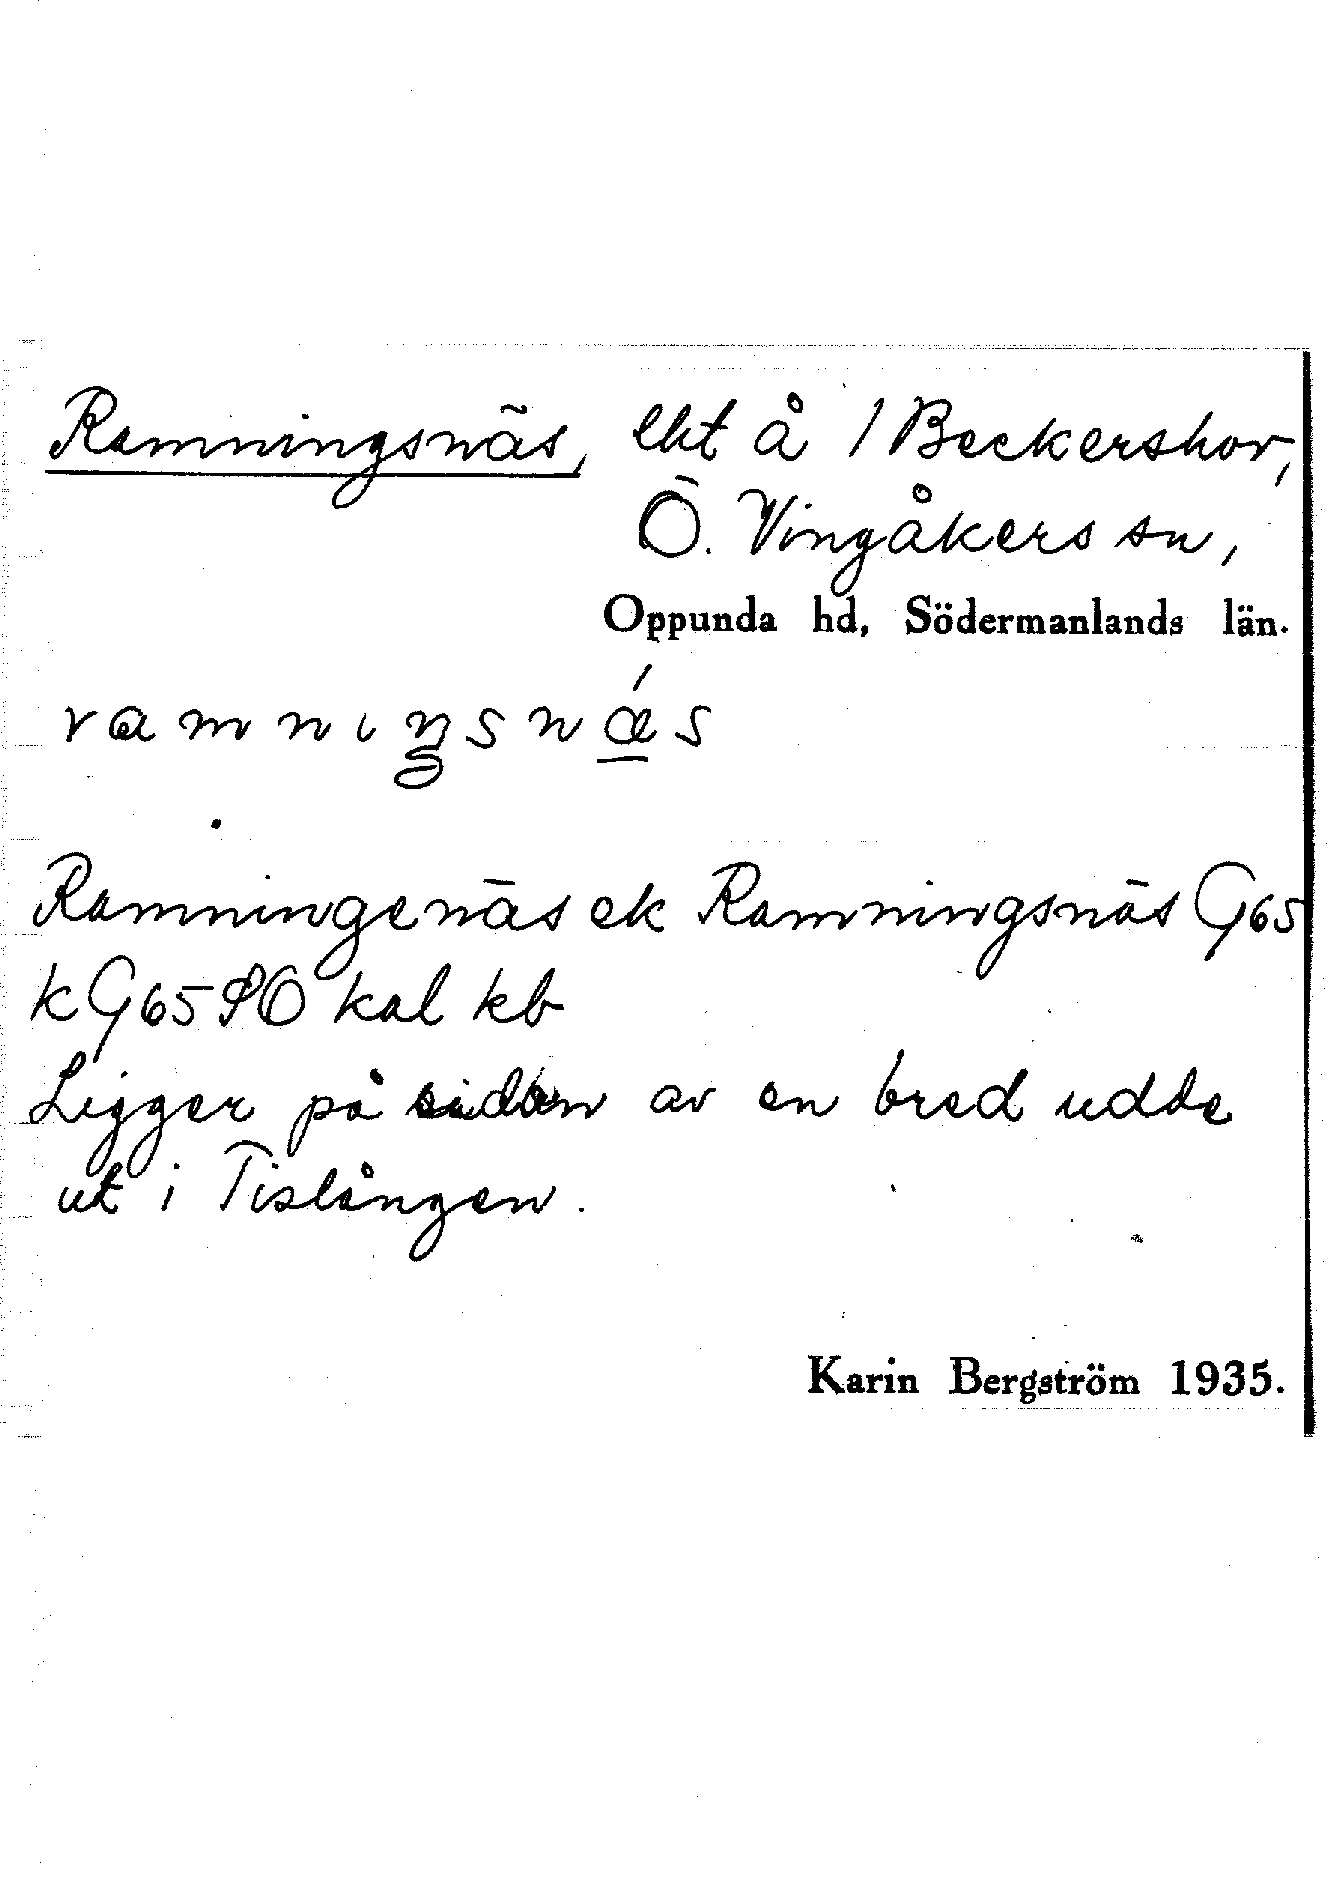 Ramningsnäs, lht å 1 Beckershov,
Ö. Vingåkers sn,
Oppunda hd, Södermanlands län.
ramnıŋsnǽs
Ramningenäs ek Ramningsnäs G65
k G65 SO kal kb
Ligger på sidan av en bred udde
ut i Tislången.
Karin Bergström 1935.